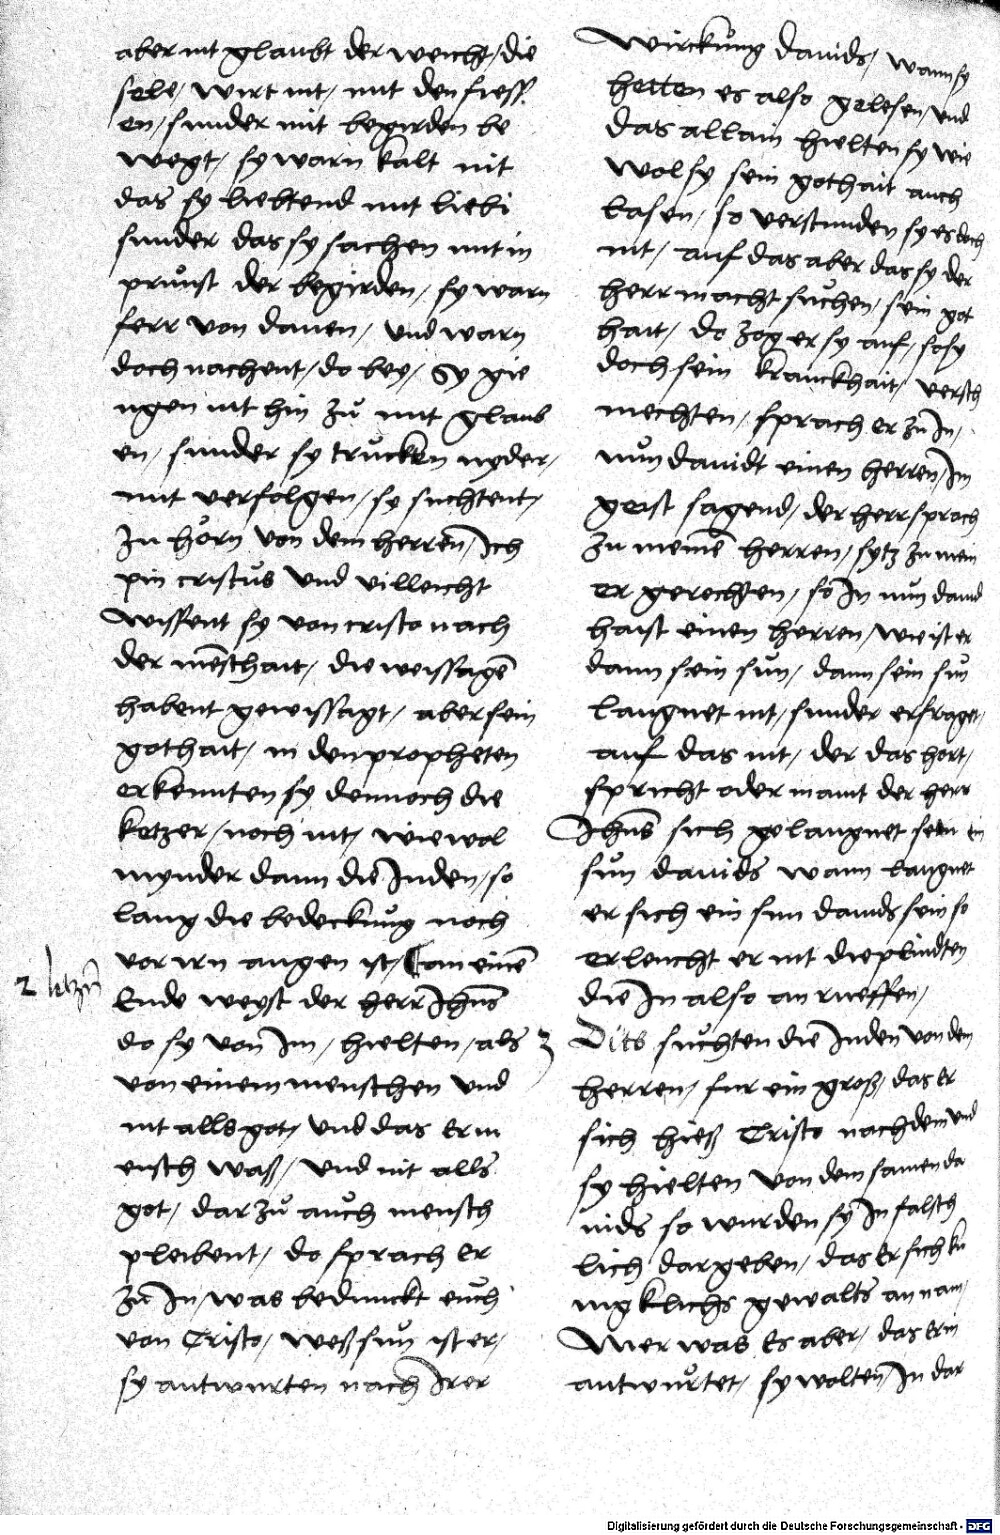 aber nit glaubt der weicht / die
sele / wirt nit / mit den fiess
en / sunder mit begirden be
wegt / sy warn kalt nit
das sy liebtend mit liebi
sunder das sy sachen mit in
prunst der begirden / sy warn
ferr von danen / und warn
doch nachent / do bey / Sy gie
ngen nit hin zů mit glaub
en / sunder sy trucken nyder /
mit verfolgen / sy suchtent /
zu hörn von dem herren / Ich
pin cristus und villeicht
wissent sy von cristo nach
der mēschait / die weissagē
habent gewissagt / aber sein
gothait / in den propheten
erkennten sy dennoch die
ketzer / noch nit / wie wol
mynder dann die Inden / so
lang die bedeckung noch
vor irn augen ist / am einē
2 letzñ
Ende weyst der herr Ihūs
do sy von Im / hielten / als
von einem menschen und
nit alls got / und das er m
ensch waß / und nit alls
got / dar zů auch mensch
pleibent / do sprach er
zu In / was bedunckt euch
von Cristo / weß sun ist er /
sy antwurten nach Irer
wirckung dauids / wann sy
hetten es also gelesen / und
das allain hielten sy wie
wol sy sein gothait auch
lasen / so verstunden sy es doch
nit / auf das aber das sy der
herr macht suchen / sein got
hait / do zog er sy auf / so sy
doch sein kranckhait / versch
mechten / sprach er zu In /
nun dauidt einen herren / Im
geist sagend / der herr sprach
zu meinē herren / sytz zu mein
er gerechten / so In nun dauid
haist einen herren / wie ist er
dann sein sun / dann sein sun
laugnet nit / sunder erfraget /
auf das nit / der das hort /
spricht oder maint der herr
Ihūs sich gelaugnet sein ein
sun dauids wann laugnet
er sich ein sun dauids sein so
erleucht er nit die plindten
die In also an rueffen /
3 Dits suchten die Inden von dem
herren / fur ein groß / das er
sich hieß Cristo nachdem und
sy hielten von dem samen da
uids so wurden sy In falsch
lich dargeben / das er sich kü
nigklichs gewalts an nam /
Wer was Es aber / das er in
antwurtet / sy wolten In dar
Digitalisierung gefördert durch die Deutsche Forschungsgemeinschaft - DFG